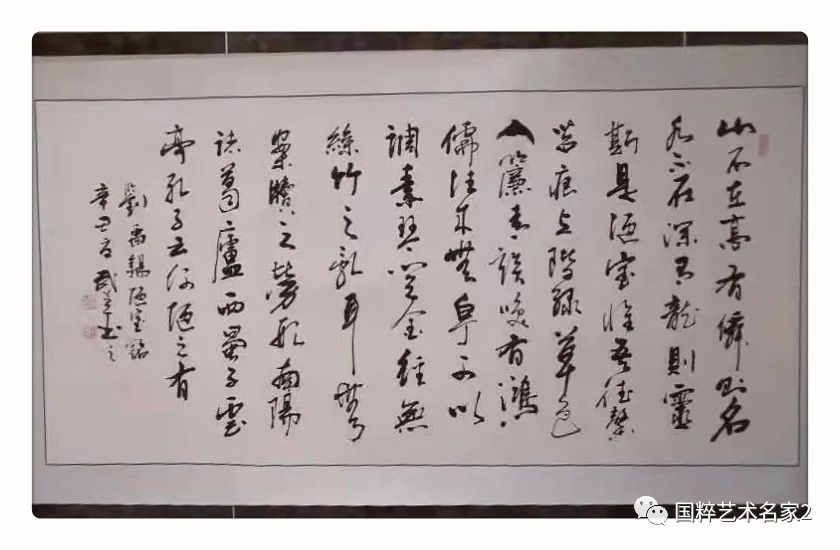 山不在高有僊則名
水不在深有龍則靈
斯是陋室惟吾德馨
苔痕上階緑草色
入簾青談笑有鴻
儒往来無白丁可以
調素琴閱金經無
絲竹之亂耳無
案牘之勞形南陽
諸葛廬西蜀子雲
亭孔子云何陋之有
劉禹錫陋室銘
辛丑夏武書之
国粹艺术名家2